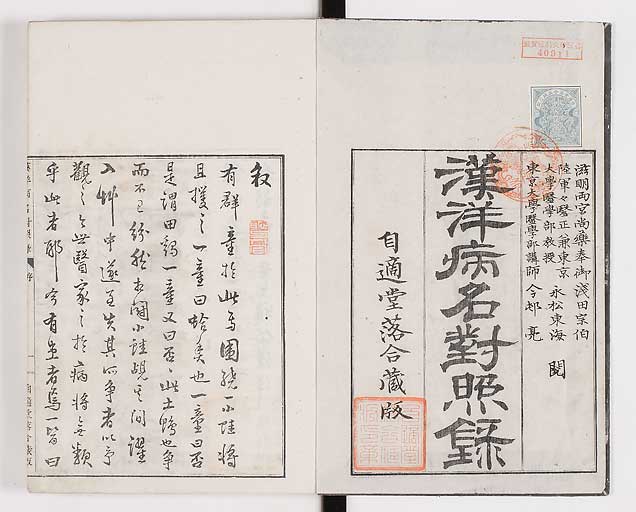 滋明両宮尚藥奉御 淺田宗伯
陸軍々醫正兼東京大學醫學部教授 永松東海 閲
東京大學醫學部講師 今邨 亮
漢洋病名對照錄
自適堂落合藏版
40911
叙
有群童於此焉圍繞一小蛙將
且捜之一童曰蛤矣也一童曰否
是謂田鷄一童又曰否此土鴨也争
而不已紛然古鬪小蛙覗其間躍
入艸中遂至失其所争者以予
觀之世醫家之於病將無類
乎此者耶今有患者焉一醫曰